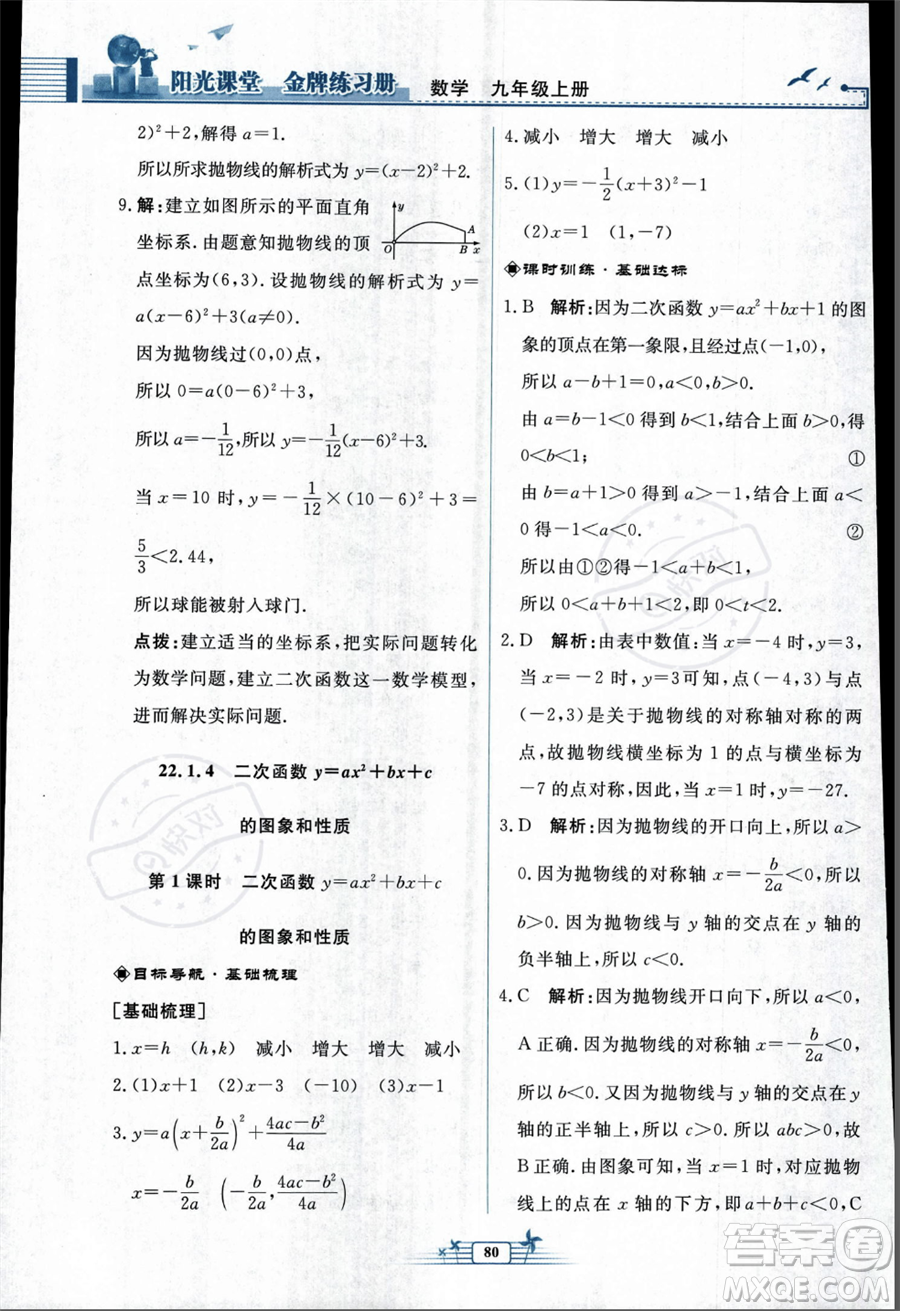 阳光课堂 金牌练习册 数学 九年级上册
2)²+2,解得 a=1.
所以所求抛物线的解析式为 y=(x-2)²+2.
9. 解:建立如图所示的平面直角
坐标系.由题意知抛物线的顶
点坐标为(6,3).设抛物线的解析式为 y=
a(x-6)²+3(a≠0).
y
A
O B x
因为抛物线过(0,0)点,
所以 0=a(0-6)²+3,
所以 a=-1/12,所以 y=-1/12(x-6)²+3.
当 x=10 时,y=-1/12×(10-6)²+3=
5/3<2.44,
所以球能被射入球门.
点拨:建立适当的坐标系,把实际问题转化
为数学问题,建立二次函数这一数学模型,
进而解决实际问题.
22.1.4 二次函数 y=ax²+bx+c
的图象和性质
第1课时 二次函数 y=ax²+bx+c
的图象和性质
目标导航·基础梳理
[基础梳理]
1. x=h (h,k) 减小 增大 增大 减小
2. (1)x+1 (2)x-3 (-10) (3)x-1
3. y=a(x+b/2a)²+(4ac-b²)/4a
x=-b/2a (-b/2a,(4ac-b²)/4a)
4. 减小 增大 增大 减小
5. (1)y=-1/2(x+3)²-1
(2)x=1 (1,-7)
课时训练·基础达标
1. B 解析:因为二次函数 y=ax²+bx+1 的图
象的顶点在第一象限,且经过点(-1,0),
所以 a-b+1=0,a<0,b>0.
由 a=b-1<0 得到 b<1,结合上面 b>0,得
0<b<1; ①
由 b=a+1>0 得到 a>-1,结合上面 a<
0 得-1<a<0. ②
所以由①②得-1<a+b<1,
所以 0<a+b+1<2,即 0<t<2.
2. D 解析:由表中数值:当 x=-4 时,y=3,
当 x=-2 时,y=3可知,点(-4,3)与点
(-2,3)是关于抛物线的对称轴对称的两
点,故抛物线横坐标为 1 的点与横坐标为
-7 的点对称,因此,当 x=1 时,y=-27.
3. D 解析:因为抛物线的开口向上,所以 a>
0.因为抛物线的对称轴 x=-b/2a<0,所以
b>0.因为抛物线与 y 轴的交点在 y 轴的
负半轴上,所以 c<0.
4. C 解析:因为抛物线开口向下,所以 a<0,
A正确.因为抛物线的对称轴 x=-b/2a<0,
所以 b<0.又因为抛物线与 y 轴的交点在 y
轴的正半轴上,所以 c>0.所以 abc>0,故
B正确.由图象可知,当 x=1 时,对应抛物
线上的点在 x 轴的下方,即 a+b+c<0,C
80
快对
快对
答案圈
MXQE.COM